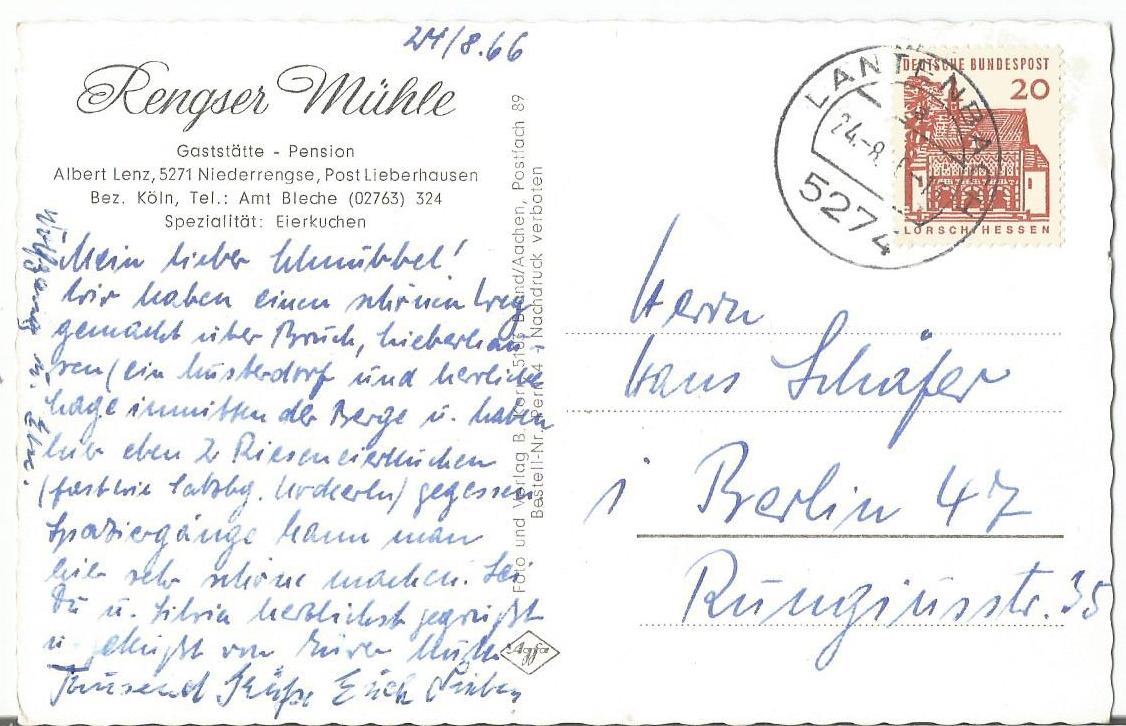 24/8.66
Rengser Mühle
Gaststätte - Pension
Albert Lenz, 5271 Niederrengse, Post Lieberhausen
Bez. Köln, Tel.: Amt Bleche (02763) 324
Spezialität: Eierkuchen
Mein lieber Schnubbel!
Wir haben einen schönen Weg
gemacht über Bruch, Lieberhau-
sen (ein Musterdorf und herrliche
Lage inmitten der Berge u. haben
hier eben 2 Rieseneierkuchen
(fast wie Salzbg. Nockerln) gegessen
Spaziergänge kann man
hier sehr schöne machen. Sei
Du u. Silvia herzlichst gegrüßt
u. geküßt von Eurer Mutti
Tausend Grüße Euch Lieben
Wolfgang u.
Foto und Verlag B. 5106 Brand/Aachen, Postfach 89
Bestell-Nr. Nachdruck verboten
Agfa
LANTENBACH
24.-8.
5274
DEUTSCHE BUNDESPOST
20
LORSCH/HESSEN
Herrn
Hans Schäfer
1 Berlin 47
Rungiusstr. 35